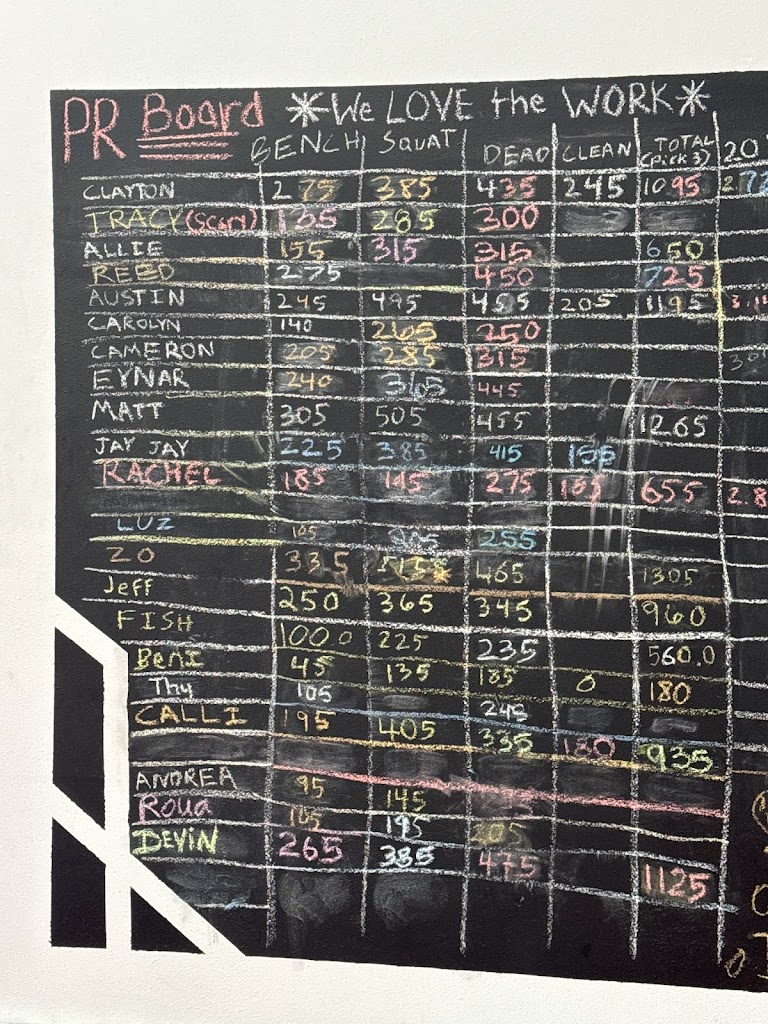 PR Board *We LOVE the WORK*
BENCH SQUAT DEAD CLEAN TOTAL (pick 3) 20
CLAYTON 275 385 435 245 1095 2.72
TRACY (scary) 135 285 300
ALLIE 155 315 315 650
REED 275 450 725
AUSTIN 245 495 455 205 1195
CAROLYN 140 265 250
CAMERON 205 285 315
EYNAR 240 365 445
MATT 305 505 455 1265
JAY JAY 225 385 415 155
RACHEL 185 145 275 105 655 2.8
LUZ 105 205 255
ZO 335 465 1305
Jeff 250 365 345 960
FISH 100.0 225 235 560.0
BENI 45 135 185 0 180
Thy 105 245
CALLI 195 405 335 180 935
ANDREA 95 145
Roua 105 195 205
DEVIN 265 385 475 1125